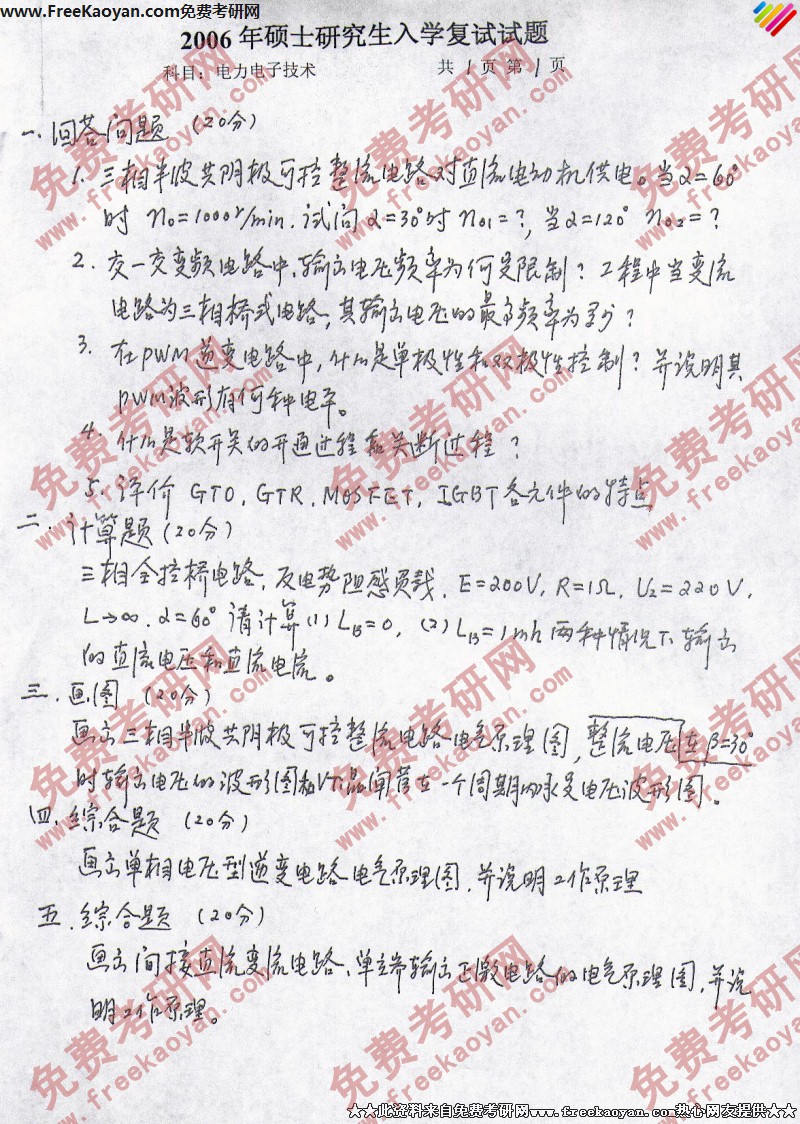 www.FreeKaoyan.com免费考研网
2006 年硕士研究生入学复试试题
科目：电力电子技术 共 1 页 第 1 页
一. 回答问题 (20分)
1. 三相半波共阴极可控整流电路对直流电动机供电。当α=60°
时 n0=1000r/min. 试问 α=30°时 n01=?, 当α=120° n02=?
2. 交—交变频电路中, 输出电压频率为何受限制? 工程中当变流
电路为三相桥式电路, 其输出电压的最高频率为多少?
3. 在PWM逆变电路中, 什么是单极性和双极性控制? 并说明其
PWM波形有何种电平。
4. 什么是软开关的开通过程和关断过程?
5. 评价 GTO, GTR, MOSFET, IGBT各元件的特点
二. 计算题 (20分)
三相全控桥电路, 反电势阻感负载, E=200V, R=1Ω, U2=220V,
L→∞. α=60° 请计算 (1) LB=0, (2) LB=1mh 两种情况下输出
的直流电压和直流电流。
三. 画图 (20分)
画出三相半波共阴极可控整流电路电气原理图, 整流电压在β=30°
时输出电压的波形图和VT晶闸管在一个周期内承受电压波形图。
四. 综合题 (20分)
画出单相电压型逆变电路电气原理图, 并说明工作原理
五. 综合题 (20分)
画出间接直流变流电路、单端输出正激电路的电气原理图, 并说
明工作原理。
★★此资料来自免费考研网www.freekaoyan.com热心网友提供★★
免费考研网
www.freekaoyan.com